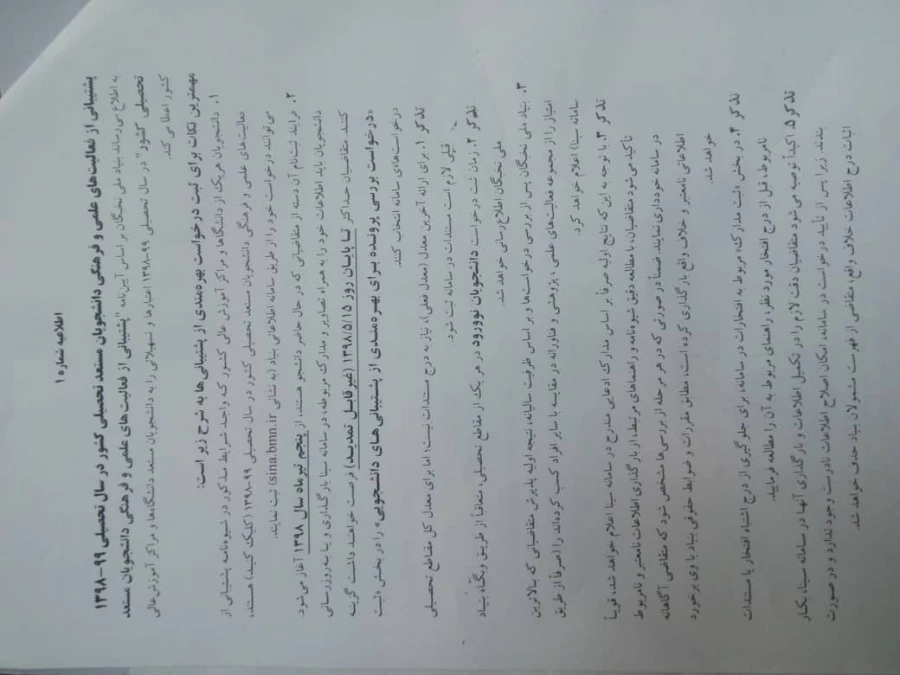 اطلاعیه شماره ۱
پشتیبانی از فعالیت‌های علمی و فرهنگی دانشجویان مستعد تحصیلی کشور در سال تحصیلی ۹۹-۱۳۹۸
به اطلاع می‌رساند بنیاد ملی نخبگان بر اساس آیین‌نامه "پشتیبانی از فعالیت‌های علمی و فرهنگی دانشجویان مستعد
تحصیلی کشور" در سال تحصیلی ۹۹-۱۳۹۸ اعتبارها و تسهیلاتی را به دانشجویان مستعد دانشگاه‌ها و مراکز آموزش عالی
کشور اعطا می‌کند.
مهمترین نکات برای ثبت درخواست بهره‌مندی از پشتیبانی‌ها به شرح زیر است:
۱. دانشجویان هریک از دانشگاه‌ها و مراکز آموزش عالی کشور که واجد شرایط مذکور در شیوه‌نامه پشتیبانی از
فعالیت‌های علمی و فرهنگی دانشجویان مستعد تحصیلی کشور در سال تحصیلی ۹۹-۱۳۹۸ (کلیک کنید) هستند،
می‌توانند درخواست خود را از طریق سامانه اطلاعاتی بنیاد (به نشانی sina.bmn.ir) ثبت نمایند.
۲. فرایند ثبت‌نام آن دسته از متقاضیانی که در حال حاضر دانشجو هستند، از پنجم تیرماه سال ۱۳۹۸ آغاز می‌شود.
دانشجویان باید اطلاعات خود را به همراه تصاویر و مدارک مربوطه، در سامانه سینا بارگذاری و یا به‌روزرسانی
کنند. متقاضیان حداکثر تا پایان روز ۱۳۹۸/۵/۱۵ (غیرقابل تمدید)، فرصت خواهند داشت گزینه
«درخواست بررسی پرونده برای بهره‌مندی از پشتیبانی‌های دانشجویی» را در بخش «ثبت
درخواست»های سامانه انتخاب کنند.
تذکر ۱. برای ارائه آخرین معدل (معدل فعلی)، نیاز به درج مستندات نیست؛ اما برای معدل کل مقاطع تحصیلی
قبلی لازم است مستندات در سامانه ثبت شود.
تذکر ۲. زمان ثبت درخواست دانشجویان نوورود در هر یک از مقاطع تحصیلی، متعاقباً از طریق وبگاه بنیاد
ملی نخبگان اطلاع‌رسانی خواهد شد.
۳. بنیاد ملی نخبگان پس از بررسی درخواست‌ها و بر اساس ظرفیت سالیانه، نتیجه اولیه پذیرش متقاضیانی که بالاترین
امتیاز را از مجموعه فعالیت‌های علمی، پژوهشی و فناورانه در مقایسه با سایر افراد کسب کرده‌اند را (صرفاً از طریق
سامانه سینا) اعلام خواهد کرد.
تذکر ۳. با توجه به این که نتایج اولیه صرفاً بر اساس مدارک ادعایی مندرج در سامانه سینا اعلام خواهد شد، قویاً
تأکید می‌شود متقاضیان، با مطالعه دقیق شیوه‌نامه و راهنماهای مرتبط، از بارگذاری اطلاعات نامعتبر و نامربوط
در سامانه خودداری نمایند. ضمناً در صورتی که در هر مرحله از بررسی‌ها مشخص شود که متقاضی آگاهانه
اطلاعاتی نامعتبر و خلاف واقع بارگذاری کرده است، مطابق مقررات و ضوابط حقوقی بنیاد با وی برخورد
خواهد شد.
تذکر ۴. در بخش «ثبت مدارک» مربوط به افتخارات در سامانه، برای جلوگیری از درج اشتباه افتخار یا مستندات
نامربوط، قبل از درج افتخار مورد نظر، راهنمای مربوط به آن را مطالعه فرمایید.
تذکر ۵. اکیداً توصیه می‌شود متقاضیان دقت لازم را در تکمیل اطلاعات و بارگذاری آنها در سامانه سینا، بکار
بندند. زیرا پس از تأیید درخواست در سامانه، امکان اصلاح اطلاعات نادرست وجود ندارد و در صورت
اثبات درج اطلاعات خلاف واقع، متقاضی از فهرست مشمولان بنیاد حذف خواهد شد.